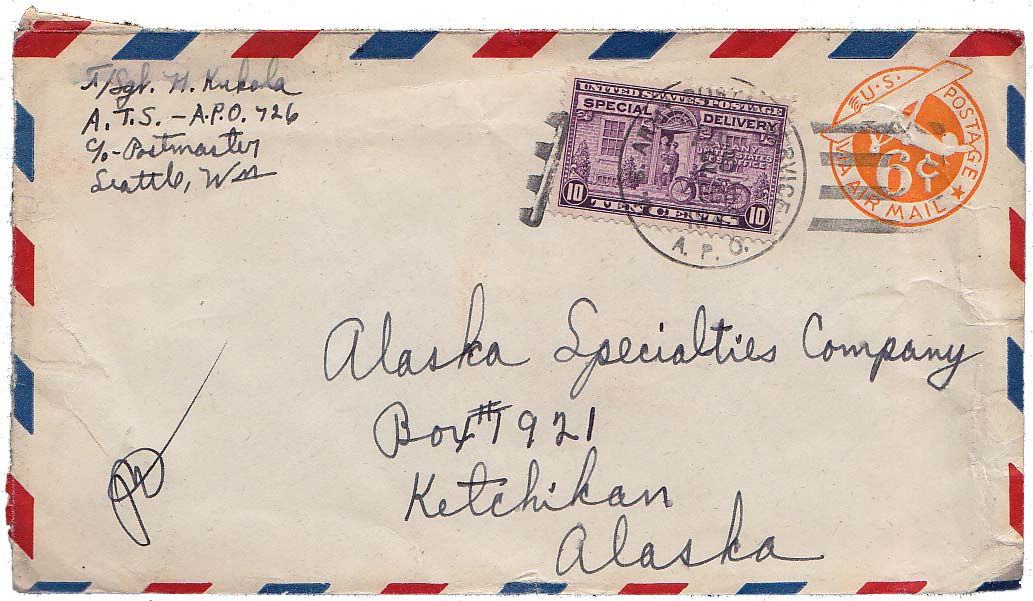 T/Sgt. H. Kukola
A.T.S. - A.P.O. 726
c/o - Postmaster
Seattle, Wn
UNITED STATES POSTAGE
SPECIAL DELIVERY
AT ANY
UNITED STATES
POST OFFICE
10 TEN CENTS 10
A. P. O.
U.S. POSTAGE
6¢
VIA AIR MAIL
Alaska Specialties Company
Box #7921
Ketchikan
Alaska